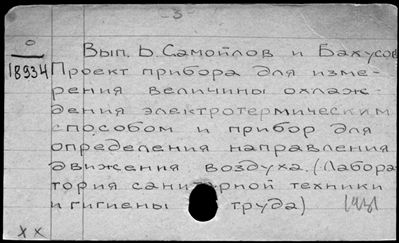 3
0
18934
Вып. Б. Самойлов и Бахусов
Проект прибора для изме-
рения величины охлаж-
дения электротермическим
способом и прибор для
определения направления
движения воздуха. (Лабора
тория санитарной техники
и гигиены труда) 1931
х х